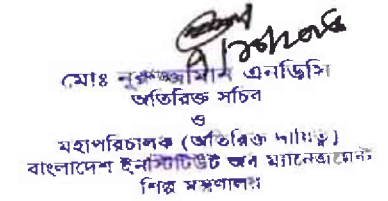 মোঃ নূরুজ্জামান এনডিসি
অতিরিক্ত সচিব
ও
মহাপরিচালক (অতিরিক্ত দায়িত্ব)
বাংলাদেশ ইনস্টিটিউট অব ম্যানেজমেন্ট
শিল্প মন্ত্রণালয়